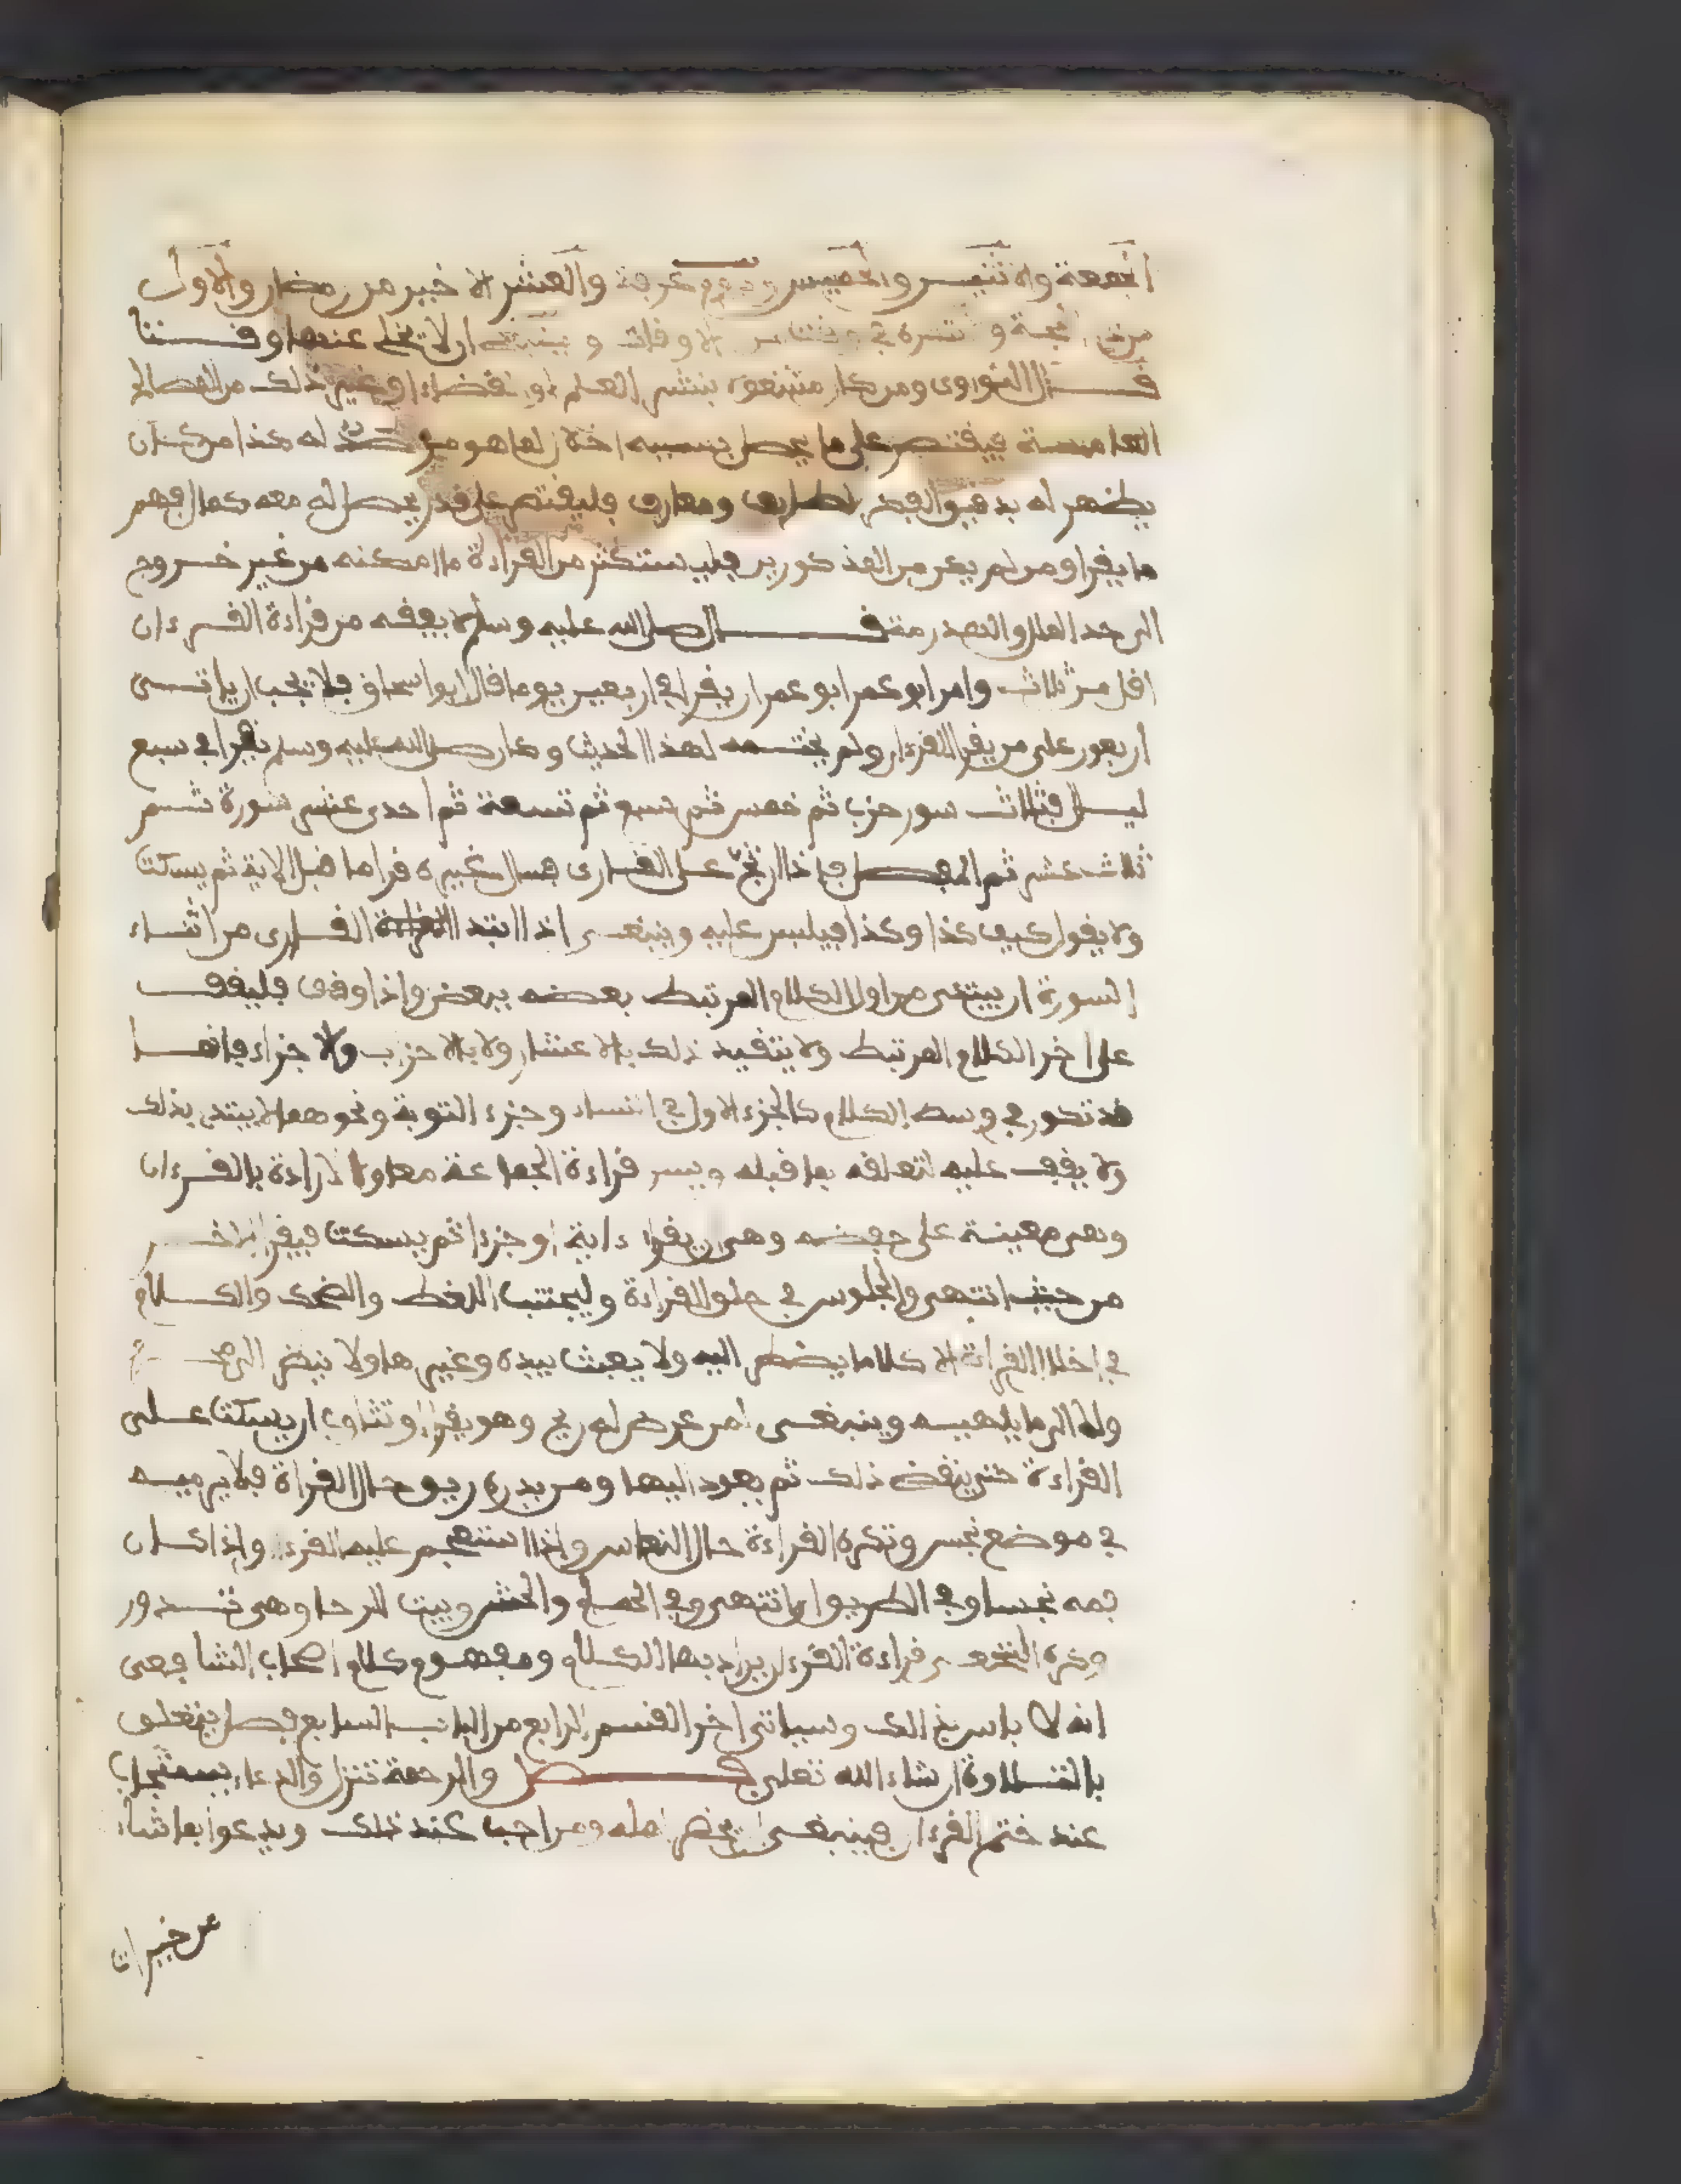 الجمعة والاثنين والخميس ويوم عرفة والعشر الاخير من رمضان والاول
من الحجة و في الاوقات و ان لا تخلى عنها وقتا
قال النووى ومن كان مشتغلا بنشر العلم او القضاء او غير ذلك من المصالح
العامة فيقتصر على ما يحصل بسببه اخلال لما هو مرصد له هذا من كان
يظهر له بدقيق الفكر لطايف ومعارف فليقتصر على قدر يحصل له معه كمال فهم
ما يقرا ومن لم يكن من المذكورين فليستكثر من القراءة ما امكنه من غير خروج
الى حد الملل والهذرمة قال صلى الله عليه وسلم لا يفقه من قراءة القرءان
اقل من ثلاث وامر ابو عمر ابو عمر ان يقرا في اربعين يوما قال ابو اسحاق فلا يجب ان ياتى
اربعون على من يقرا القرءان ولم يختمه لهذا الحديث وكان صلى الله عليه وسلم يقرا في سبع
ليال فثلاث سور حزب ثم خمس ثم سبع ثم تسعة ثم احدى عشر سورة ثم
ثلاث عشر ثم المفصل فاذا ارتج على القارى فسال غيره قرا ما قبل الاية ثم يسكت
ولا يقول كيف كذا وكذا فيلبس عليه وينبغى اذا ابتدا القارى من اثناء
السورة ان يبتدى من اول الكلام المرتبط بعضه ببعض واذا وقف فليقف
على اخر الكلام المرتبط ولا يتقيد ذلك بالاعشار ولا بالاحزاب ولا جزاء فانها
قد تكون في وسط الكلام كالجزء الاول في النساء وجزء التوبة ونحوهما لا يبتدى بذلك
ولا يقف عليه لتعلقه بما قبله ويسن قراءة الجماعة معا ولا الارادة بالقرءان
وهى معينة على حفضه وهى ان يقرا ءاية او جزءا ثم يسكت فيقرا الاخر
من حيث انتهى والجلوس في حلق القراءة وليجتنب اللغط والضحك والكلام
في اخلال القراة الا كلاما يضطر اليه ولا يعبث بيده وغيرها ولا ينظر الى
ولا الى ما يلهيه وينبغى لمن عرض له ريح وهو يقرا او تثاوب ان يسكت على
القراءة حتى ينقض ذلك ثم يعود اليها ومن بدره ريق حال القراة فلا يرميه
في موضع نجس وتكره القراءة حال النعاس واذا استعجم عليه القرءان واذا كان
فمه نجسا وفي الطريق ان انتهى وفي الحمام والحش وبيت الرحا وهى تدور
وكره النخعى قراءة القرءان يراد بها الكلام ومفهوم كلام اصحاب الشافعى
انه لا باس بذالك وسياتى اخر القسم الرابع من الباب السابع فصل يتعلق
بالتلاوة ان شاء الله تعلى فصل والرحمة تنزل والدعاء يستجاب
عند ختم القرءان فينبغى ان يحضر اهله ومن احب عند ذلك ويدعوا بما شاء
من خيرات